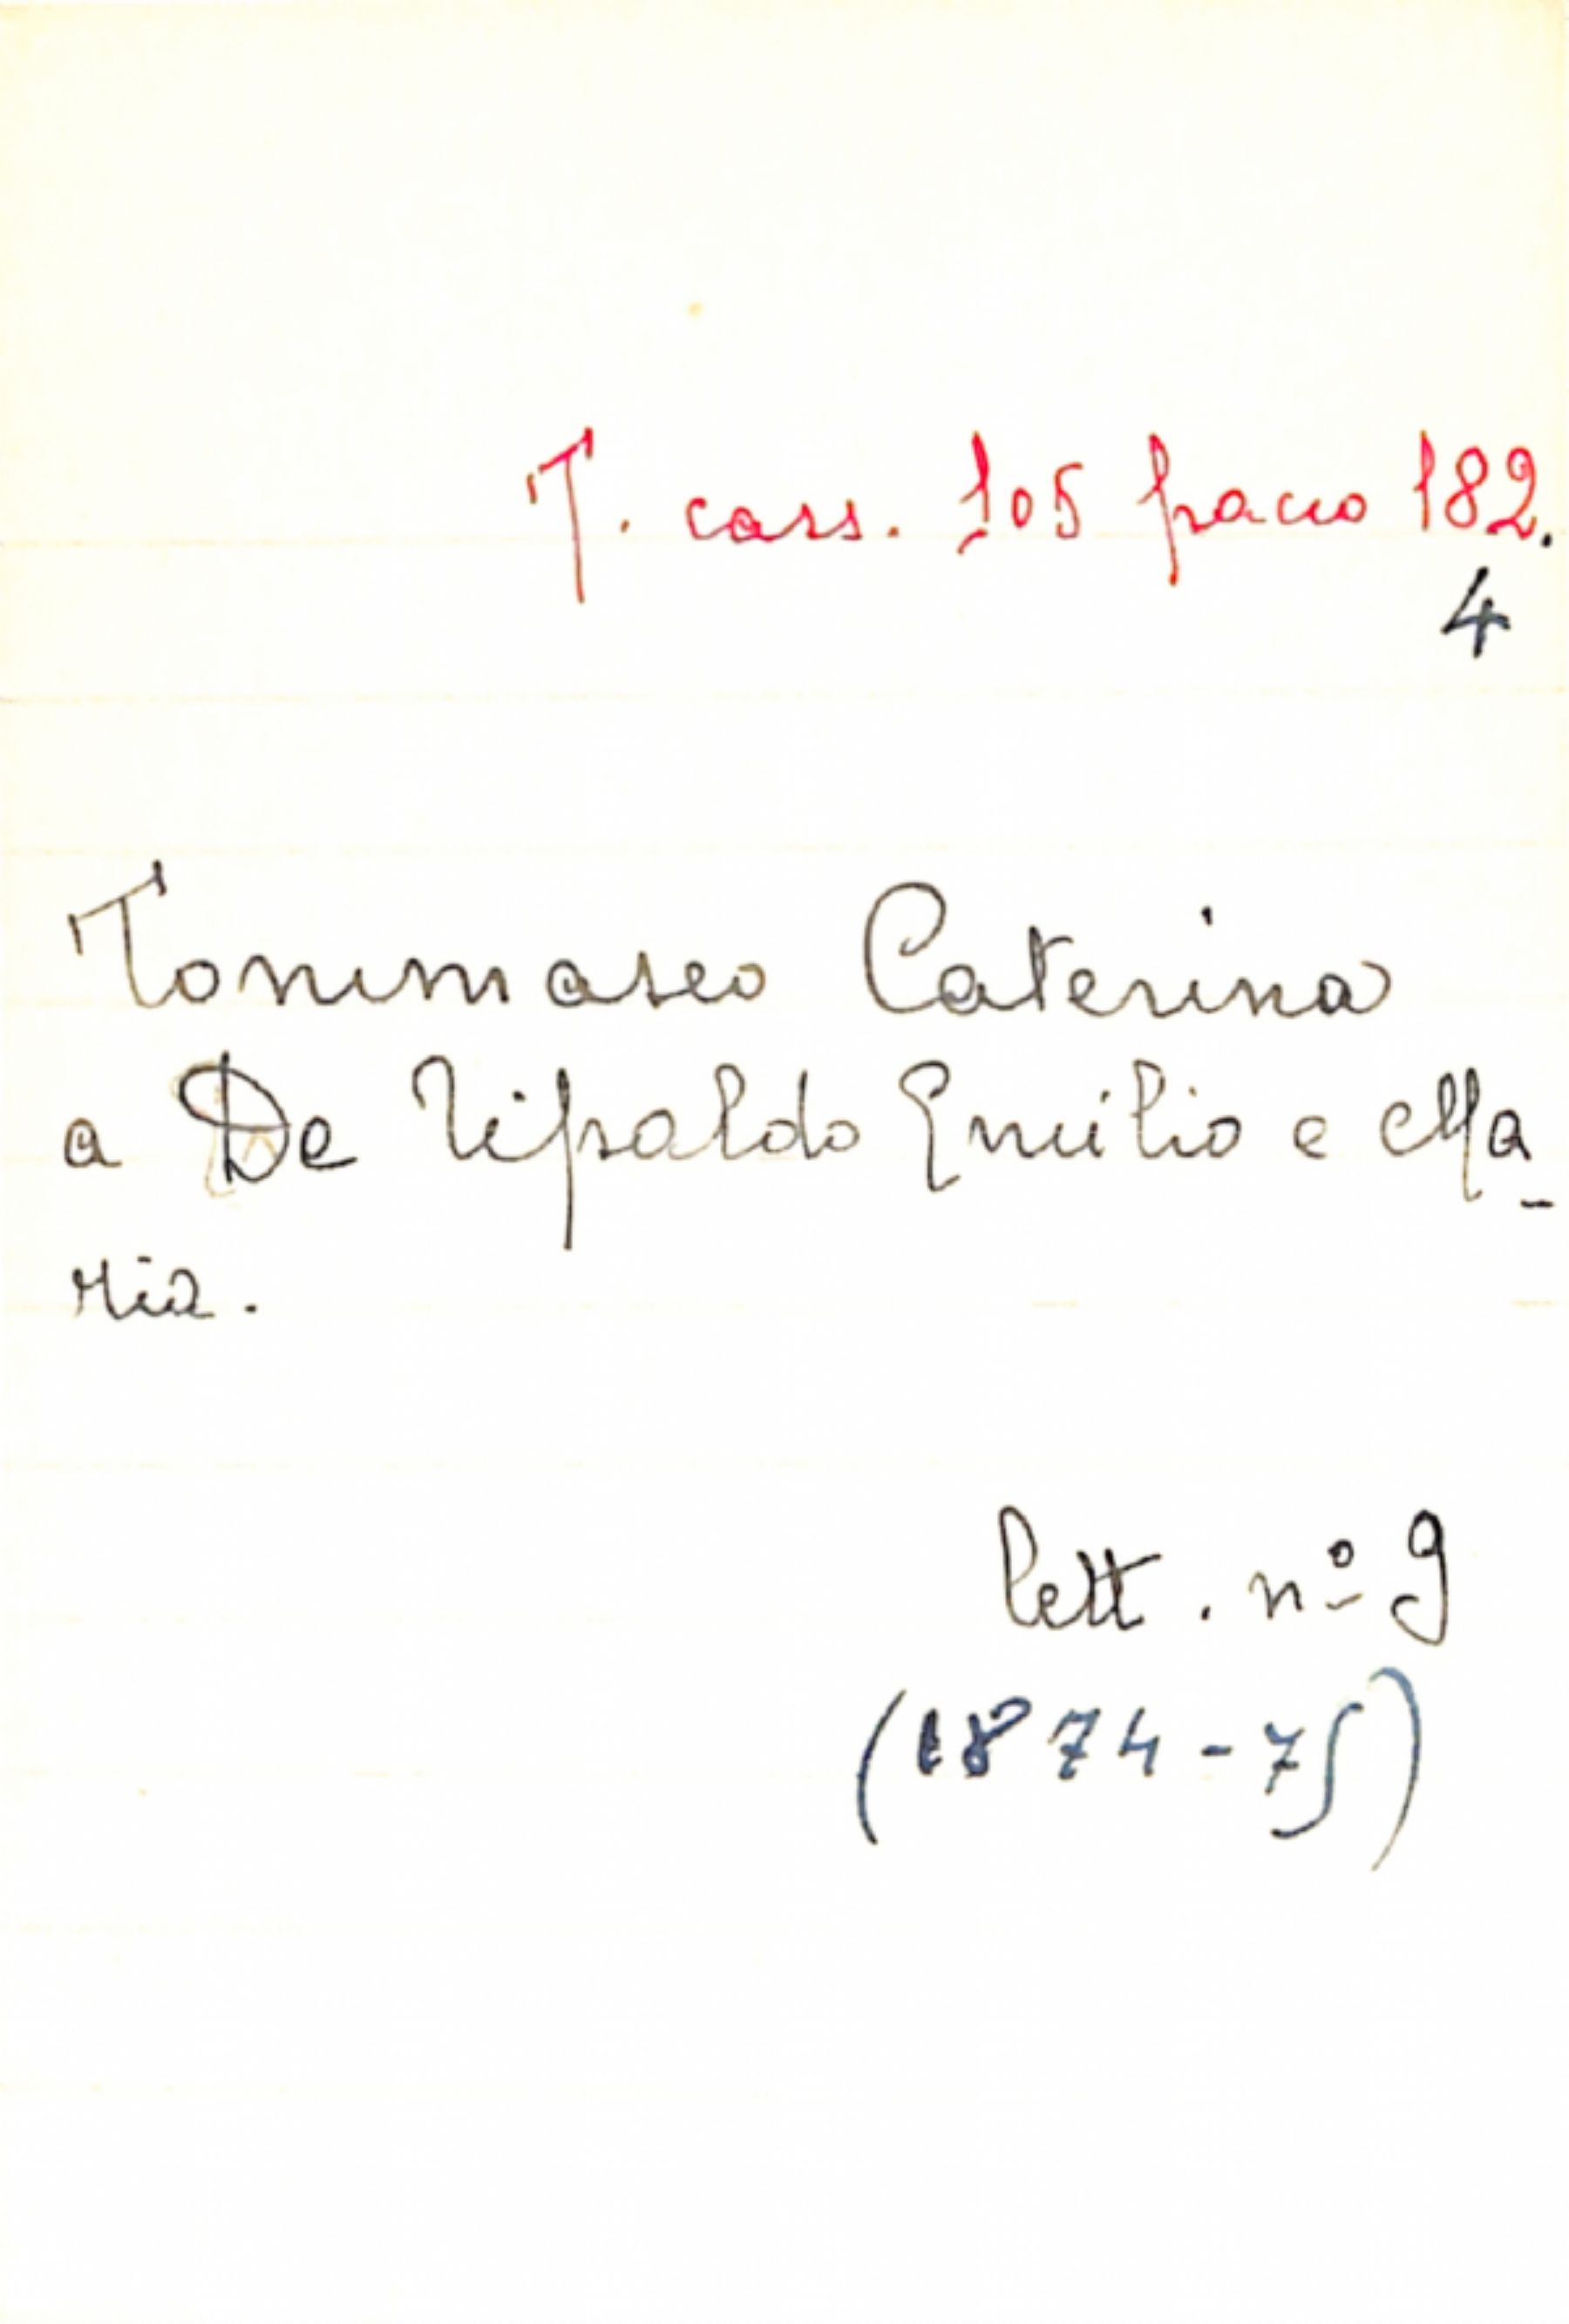 T. cass. 105 pacco 182.
4
Tommaseo Caterina
a De Tipaldo Emilio e Ma-
ria.
lett. nº 9
(1874-75)